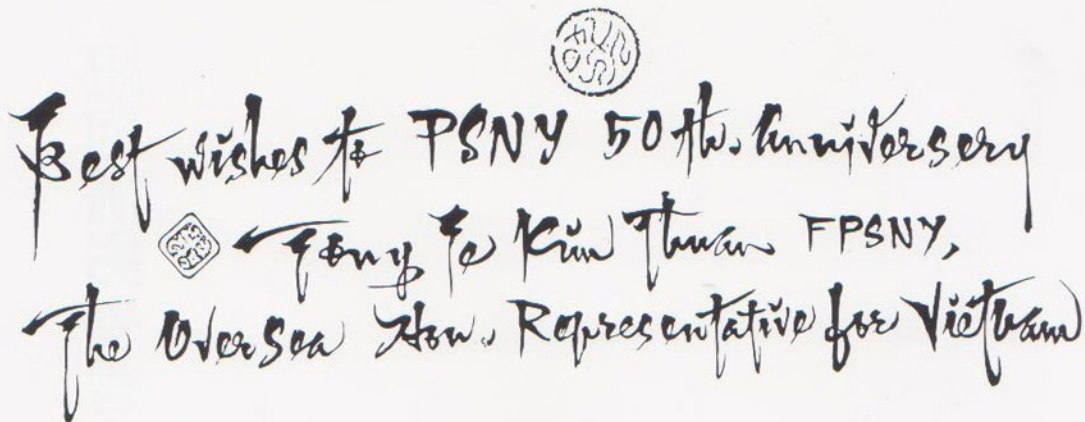 Best wishes to PSNY 50th. Anniversery
Tony Le Kim Thuan FPSNY,
The Oversea Hon. Representative for Vietnam